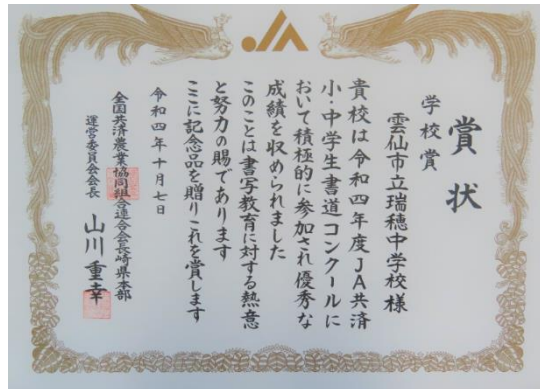 賞状
学校賞
雲仙市立瑞穂中学校様
貴校は令和四年度JA共済
小・中学生書道コンクールに
おいて積極的に参加され優秀な
成績を収められました
このことは書写教育に対する熱意
と努力の賜であります
ここに記念品を贈りこれを賞します
令和四年十月七日
全国共済農業協同組合連合会長崎県本部
運営委員会会長 山川重幸